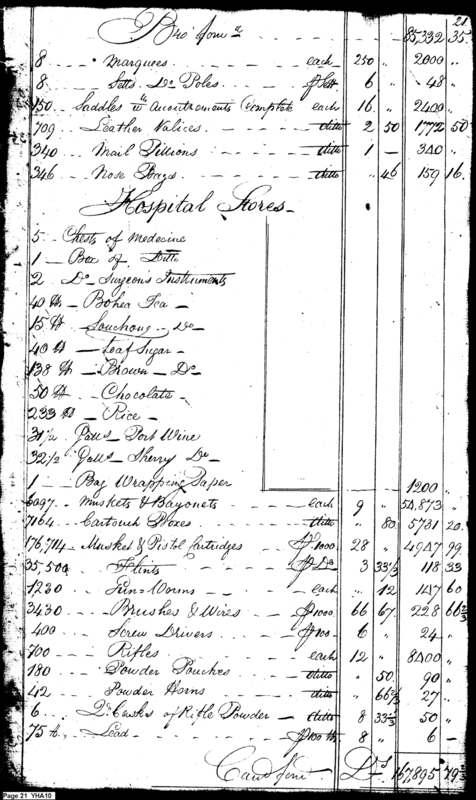 21
Bro.t forw.d 85,332 35
8 Marquees each 250 " 2000 "
8 Setts Do Poles ⅌ Sett 6 " 48 "
150 Saddles w.th Acoutrements Complete each 16 " 2400 "
709 Leather Valices ditto 2 50 1772 50
340 Mail Pillions ditto 1 — 340
346 Nose Bags ditto " 46 159 16
Hospital Stores
5 Chests of Medecine
1 Box of Ditto
2 Do Surgeons Instruments
40 ℔ Bohea Tea
15 ℔ Souchong Do
40 ℔ Loaf Sugar
138 ℔ Brown Do
50 ℔ Chocolate
233 ℔ Rice
31 1/2 Galls Port Wine
32 1/2 Galls Sherry Do
1 Bag Wrapping Paper 1200 "
6097 Muskets & Bayonets each 9 " 54,873 "
7164 Cartouch Boxes ditto " 80 5731 20
176,714 Musket & Pistol Cartridges ⅌ 1000 28 " 4947 99
35,500 Flints ⅌ Do 3 33 1/3 118 33
1230 Gun Worms each " 12 147 60
3430 Brushes & Wires ⅌ 1000 66 67 228 66 2/3
400 Screw Drivers ⅌ 100 6 " 24 "
700 Rifles each 12 " 8400 "
180 Powder Pouches ditto " 50 90 "
42 Powder Horns ditto " 66 2/3 27 "
6 Qr Casks of Rifle Powder ditto 8 33 1/3 50 "
75 ℔ Lead ⅌ 100 ℔ 8 " 6 —
Card forw.d D.rs 167,895 79 2/3
Page 21 YHA10